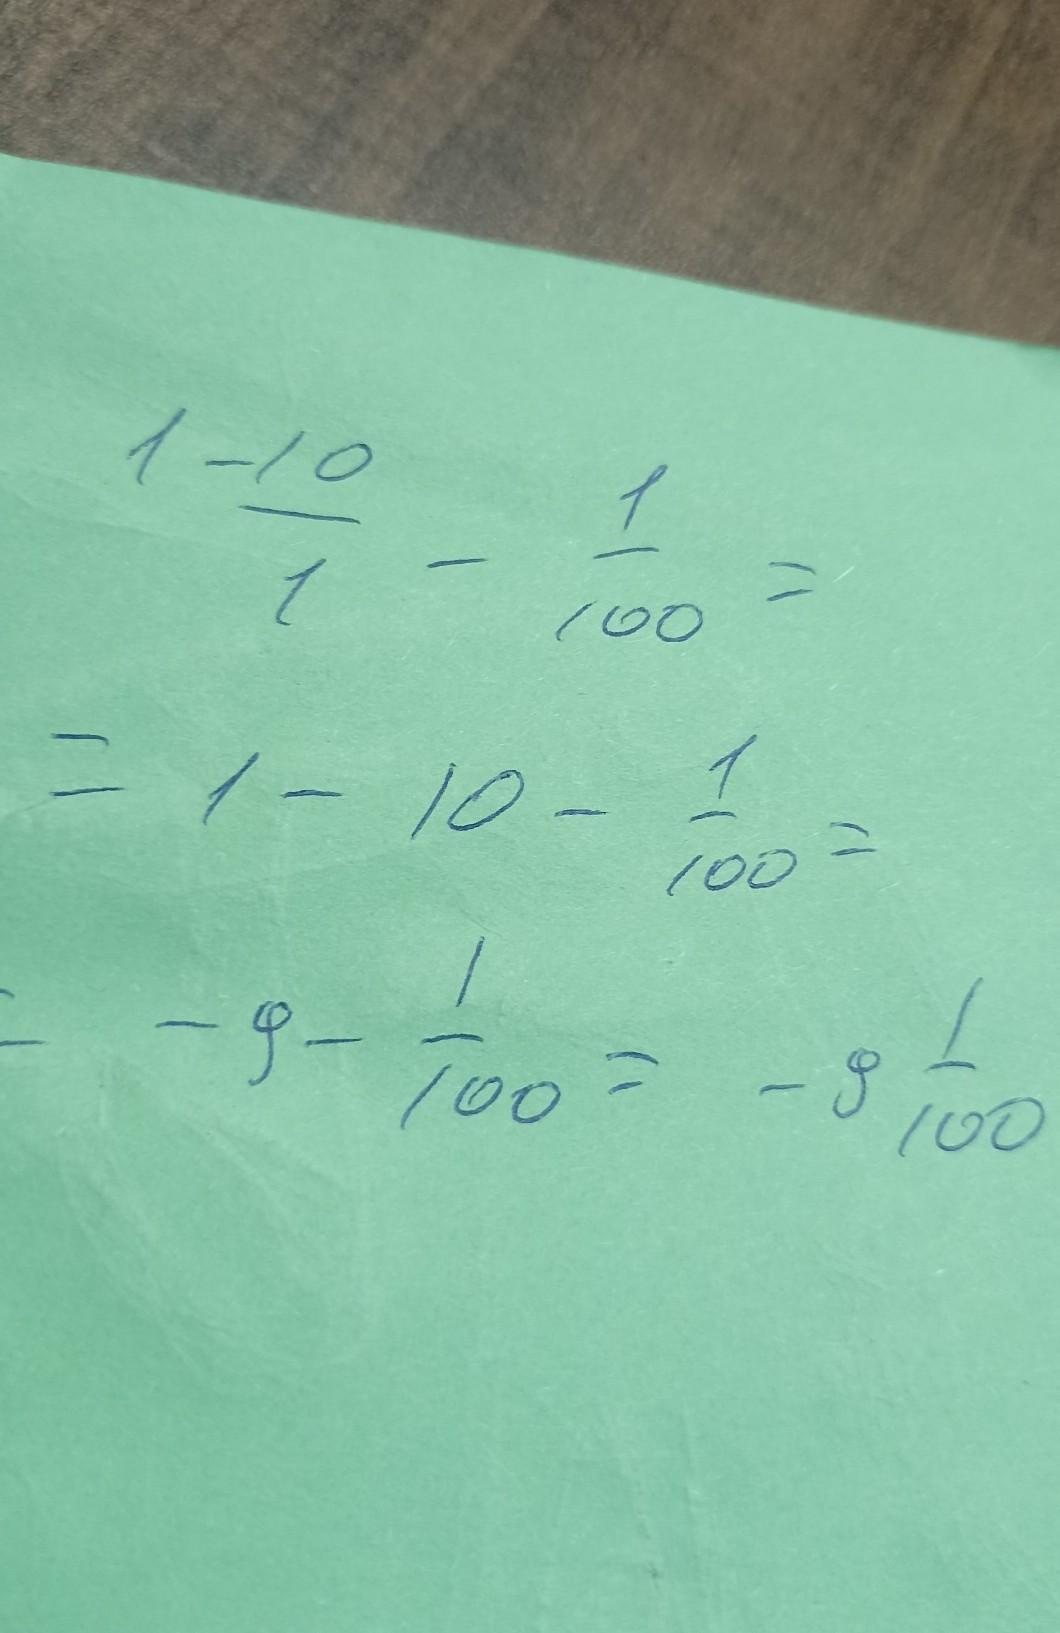 1 - 10/1 - 1/100 =
= 1 - 10 - 1/100 =
= - 9 - 1/100 = - 9 1/100